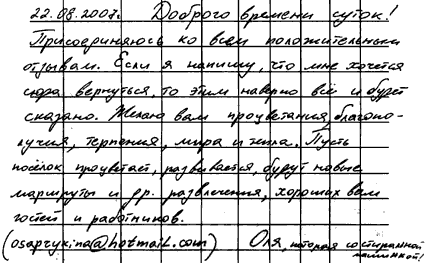 22.08.2007г. Доброго времени суток!
Присоединяюсь ко всем положительным
отзывам. Если я напишу, что мне хочется
сюда вернуться, то этим наверно всё и будет
сказано. Желаю вам процветания, благопо-
лучия, терпения, мира и тепла. Пусть
посёлок процветает, развивается, будут новые
маршруты и др. развлечения, хороших вам
гостей и работников.
(osapryxina@hotmail.com) Оля, которая со стиральной
машинкой!